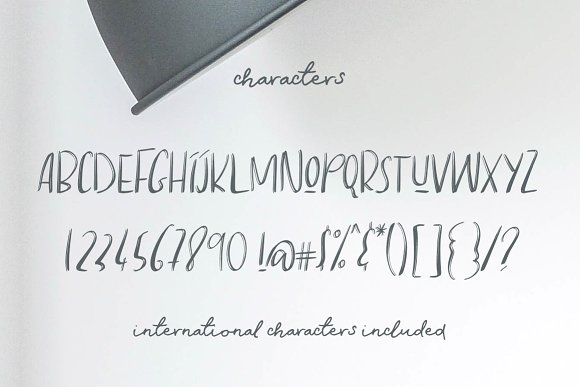 characters
ABCDEFGHIJKLMNOPQRSTUVWXYZ
1234567890 !@#$%^&*()[]{}/?
international characters included